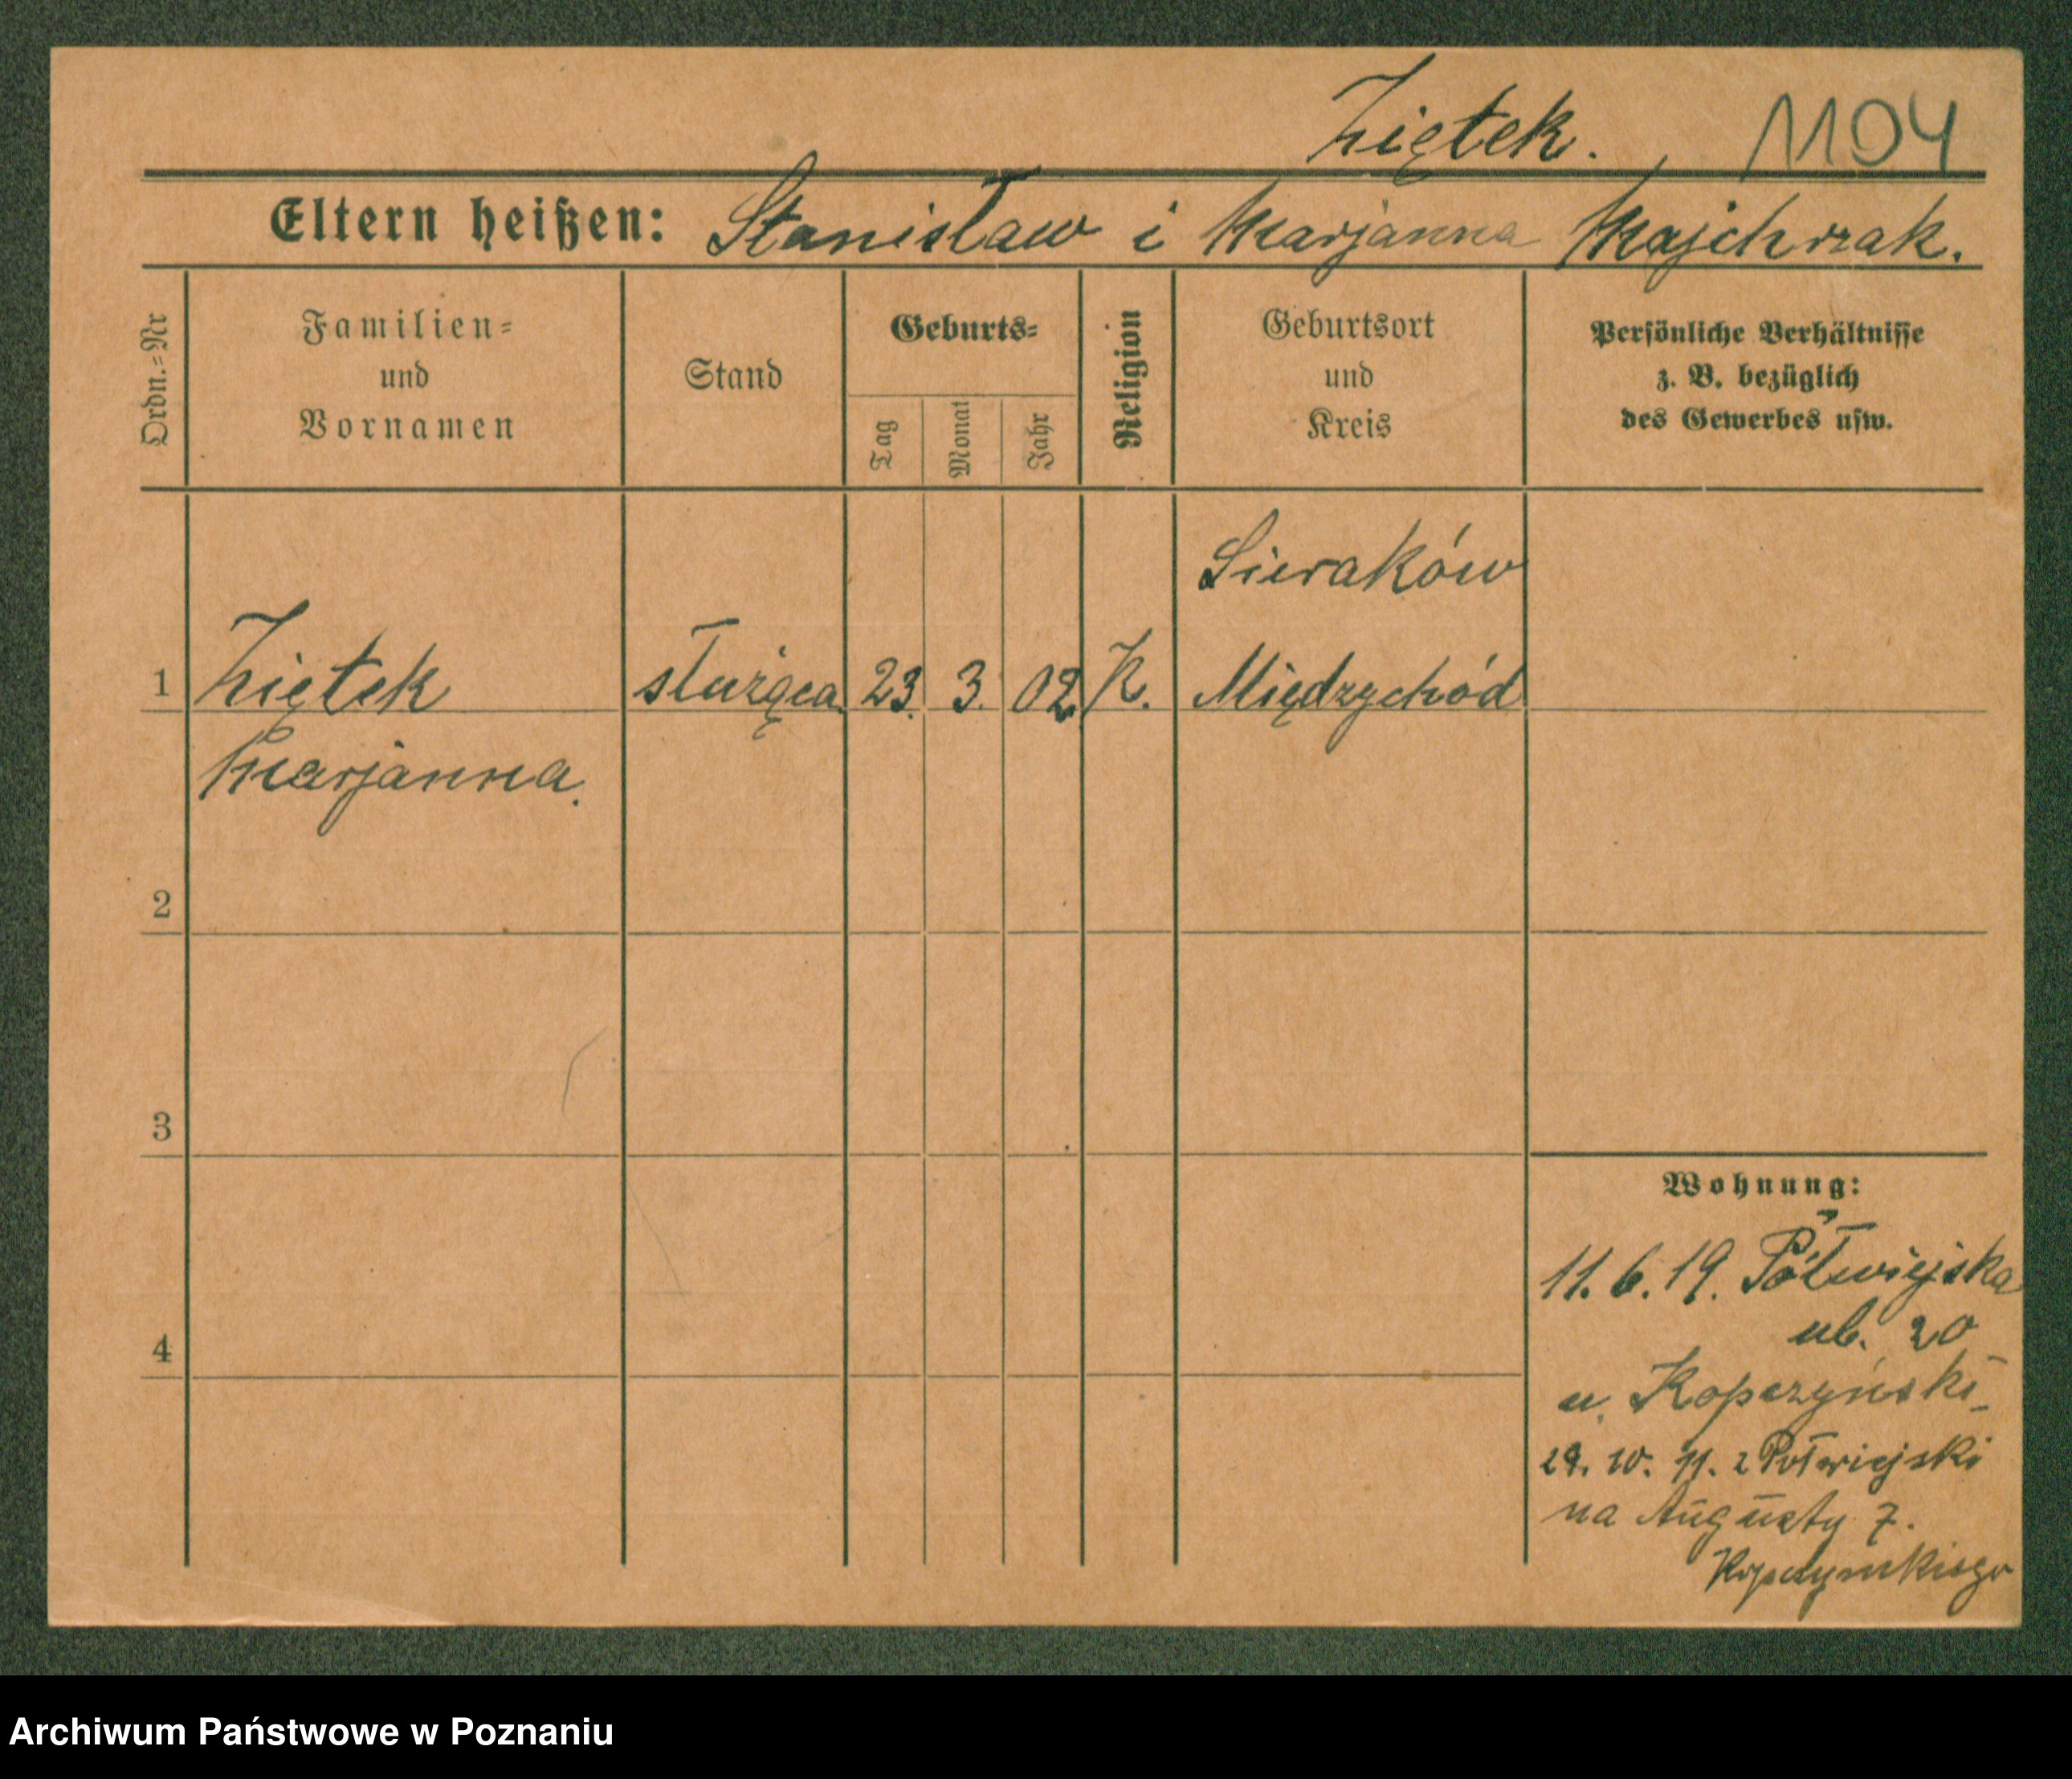 Ziętek. 1104
Eltern heißen: Stanisław i Marjanna Majchrzak.
Ordn.=Nr
Familien=
und
Vornamen
Stand
Geburts=
Tag
Monat
Jahr
Religion
Geburtsort
und
Kreis
Persönliche Verhältnisse
z. B. bezüglich
des Gewerbes usw.
Sieraków
1 Ziętek służąca 23. 3. 02 K. Międzychód
Marjanna.
2
3
Wohnung:
11.6.19. Półwiejska
ub. 20
4
u. Kopczyński
10. z Półwiejski
na Augusty 7.
Kopczyńskiego
Archiwum Państwowe w Poznaniu